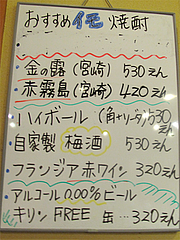 おすすめ イモ 焼酎
金の露(宮崎) 530えん
赤霧島(宮崎) 420えん
ハイボール(角+ソーダ) 530えん
自家製 梅酒 530えん
フランジア 赤ワイン 320えん
アルコール0.00%ビール
キリン FREE 缶…320えん